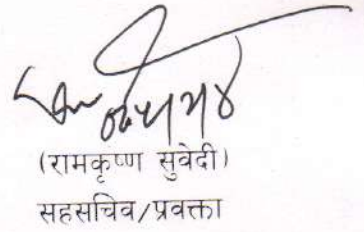 (रामकृष्ण सुवेदी)
सहसचिव/प्रवक्ता